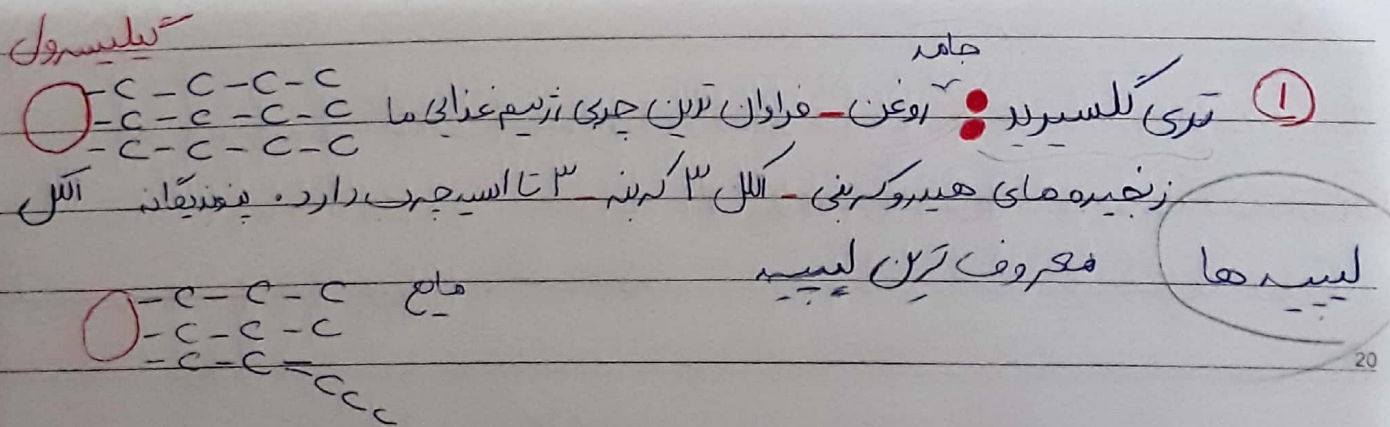 گلیسرول
جامد
① تری گلسیرید : روغن – فراوان ترین چربی رژیم غذایی ما
-C-C-C-C
-C-C-C-C
-C-C-C-C
زنجیره های هیدروکربنی – الکل ۳ کربنه – ۳ تا اسید چرب دارد. الکل
لیپید ها معروف ترین لیپید
مایع
-C-C-C
-C-C-C
-C-C=CCC
20